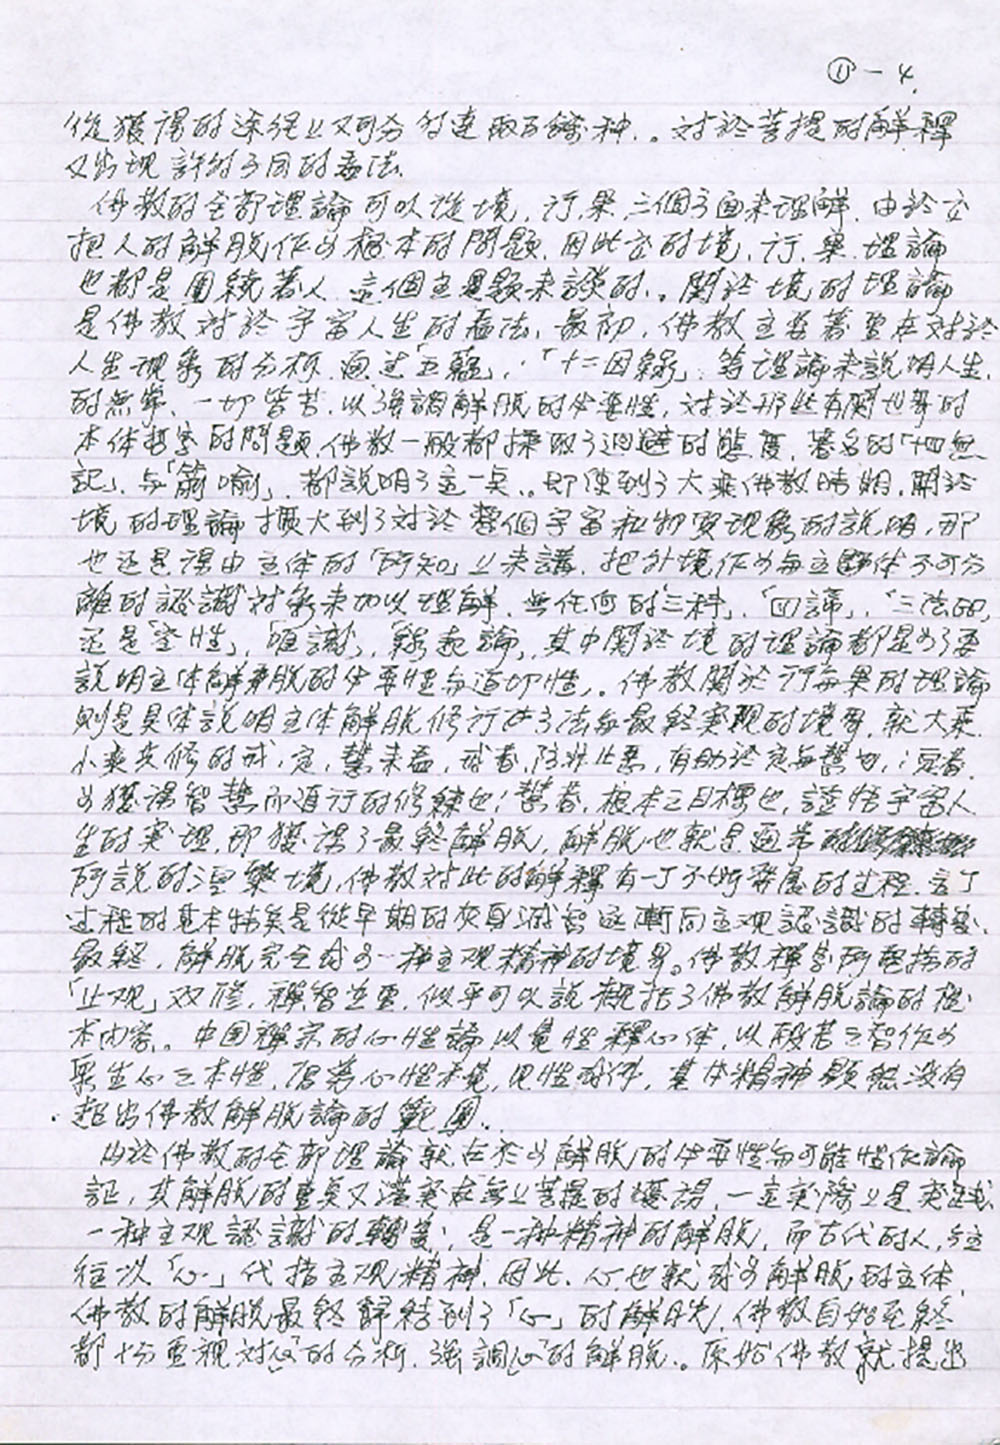 ⑪－4
從獲得的途徑上又可分付速取不等種．。对於菩提的解釋
又出現許多不同的看法．
佛教的全部理論可以從境．行．果．三個方面來理解．由於它
把人的解脫作为根本的問題．因此它的境．行．果．理論
也都是圍繞著人．這個主題來談的．。關於境的理論
是佛教对於宇宙人生的看法．最初．佛教主要著重在对於
人生現象的分析．通过「五蘊」．「十二因緣」．等理論來說明人生．
的無常．一切皆苦．以強調解脫的必要性．对於那些有關世界的
本体哲学的問題．佛教一般都採取了迴避的態度．著名的「十四無
記」．与「箭喻」．都說明了这一点．。即使到了大乘佛教時期．關於
境的理論擴大到了对於整個宇宙和物質現象的說明．那
也还是湯由主体的「所知」上來講．把外境作为与主体不可分
離的認識对象來加以理解．無任何的「三科」．「四諦」．「三法印」
还是「空性」．「唯識」．「緣起論」．其中關於境的理論都是为了要
說明主体解脫的必要性与迫切性．。佛教關於行与果的理論
則是具体說明主体解脫修行的方法与最終实現的境界．就大乘．
小乘共修的戒．定．慧來看．戒者．防非止惡．有助於定与慧也．；定者．
为獲得智慧而進行的修練也；慧者．根本之目標也．證悟宇宙人
生的实理．即獲得了最終解脫．解脫也就是通常
所說的涅槃境．佛教对此的解釋有一丁不断發展的过程．言丁
过程的基本特点是從早期的灰身滅智逐漸向主观認識的轉变．
最終．解脫完全成为一种主观精神的境界。佛教禪学所包括的
「止观」双修．禪智並重．似乎可以說概括了佛教解脫論的根
本内容．。中国禪宗的心性論以覺性釋心体．以般若之智作为
眾生心之本性．倡導心性本覺．見性成佛．基本精神顯然沒有
超出佛教解脫論的範圍．．
由於佛教的全部理論就在於为解脫的必要性与可能性作論
証．其解脫的重点又落实在無上菩提的獲得．一定实際上是突出成
一种主观認識的轉变．是一种精神的解脫．而古代的人．与主
往以「心」代指主观精神．因此．心也就成为解脫的主体．
佛教的解脫最終歸結到了「心」的解脫．佛教自始至終
都十分重視对「心」的分析．強調「心」的解脫．。原始佛教就提出